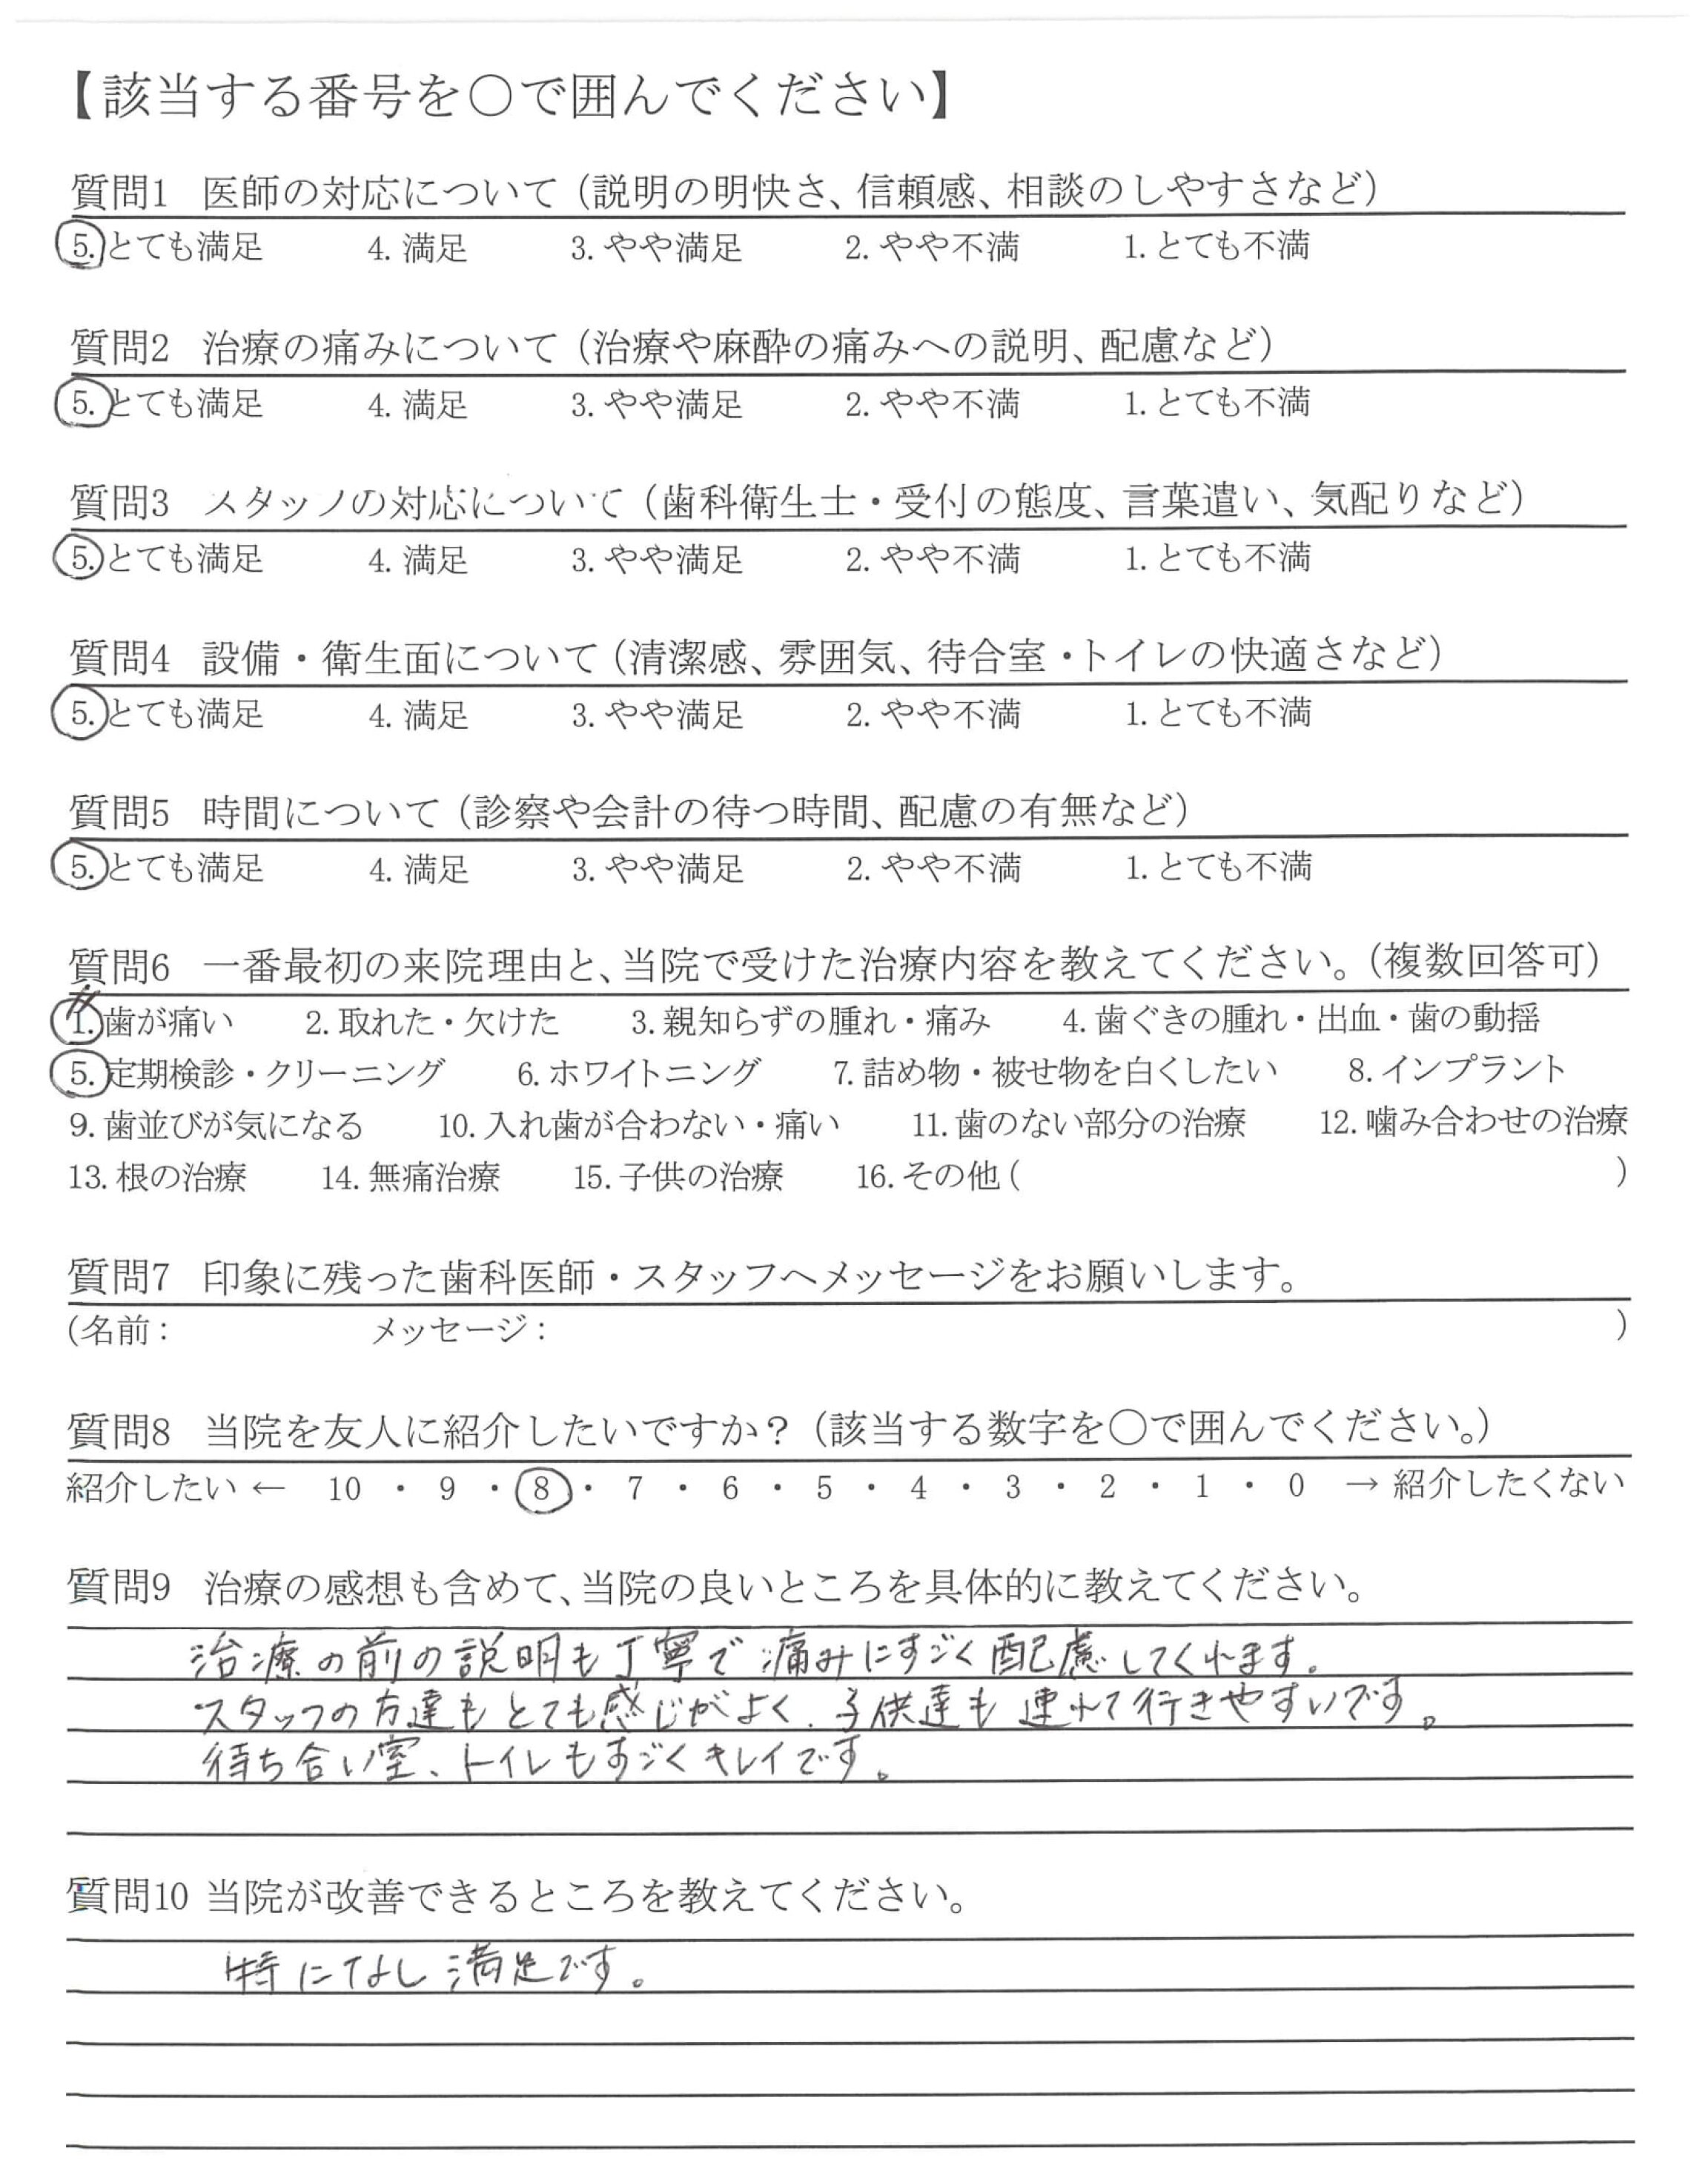 【該当する番号を○で囲んでください】
質問1 医師の対応について（説明の明快さ、信頼感、相談のしやすさなど）
5. とても満足 4. 満足 3. やや満足 2. やや不満 1. とても不満
質問2 治療の痛みについて（治療や麻酔の痛みへの説明、配慮など）
5. とても満足 4. 満足 3. やや満足 2. やや不満 1. とても不満
質問3 スタッフの対応について（歯科衛生士・受付の態度、言葉遣い、気配りなど）
5. とても満足 4. 満足 3. やや満足 2. やや不満 1. とても不満
質問4 設備・衛生面について（清潔感、雰囲気、待合室・トイレの快適さなど）
5. とても満足 4. 満足 3. やや満足 2. やや不満 1. とても不満
質問5 時間について（診察や会計の待つ時間、配慮の有無など）
5. とても満足 4. 満足 3. やや満足 2. やや不満 1. とても不満
質問6 一番最初の来院理由と、当院で受けた治療内容を教えてください。（複数回答可）
1. 歯が痛い 2. 取れた・欠けた 3. 親知らずの腫れ・痛み 4. 歯ぐきの腫れ・出血・歯の動揺
5. 定期検診・クリーニング 6. ホワイトニング 7. 詰め物・被せ物を白くしたい 8. インプラント
9. 歯並びが気になる 10. 入れ歯が合わない・痛い 11. 歯のない部分の治療 12. 噛み合わせの治療
13. 根の治療 14. 無痛治療 15. 子供の治療 16. その他（ ）
質問7 印象に残った歯科医師・スタッフへメッセージをお願いします。
（名前： メッセージ： ）
質問8 当院を友人に紹介したいですか？（該当する数字を○で囲んでください。）
紹介したい ← 10 ・ 9 ・ 8 ・ 7 ・ 6 ・ 5 ・ 4 ・ 3 ・ 2 ・ 1 ・ 0 → 紹介したくない
質問9 治療の感想も含めて、当院の良いところを具体的に教えてください。
治療の前の説明も丁寧で痛みにすごく配慮してくれます。
スタッフの方達もとても感じがよく、子供達も連れて行きやすいです。
待ち合い室、トイレもすごくキレイです。
質問10 当院が改善できるところを教えてください。
特になし満足です。